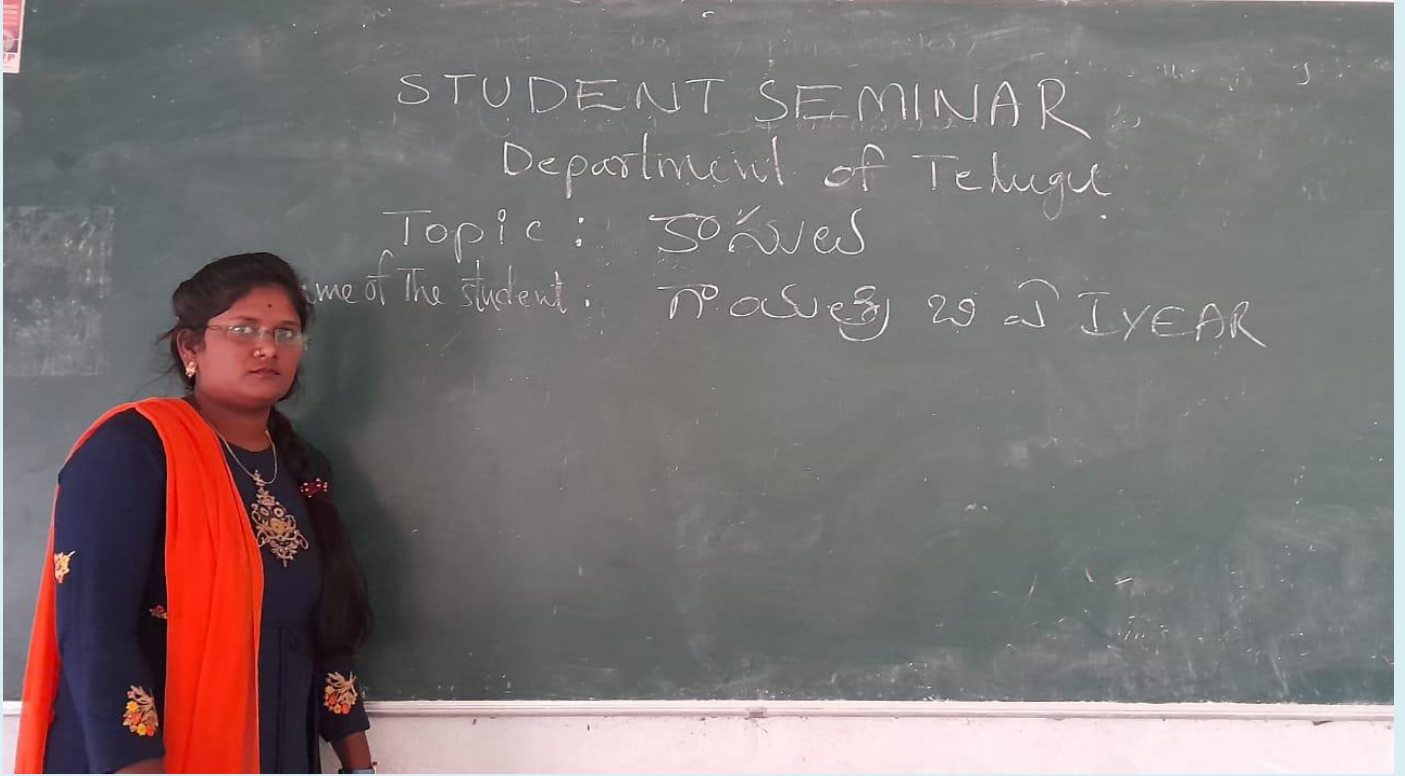 STUDENT SEMINAR
Department of Telugu
Topic : కాసులు
me of The student : గాయత్రి బి ఎ I YEAR